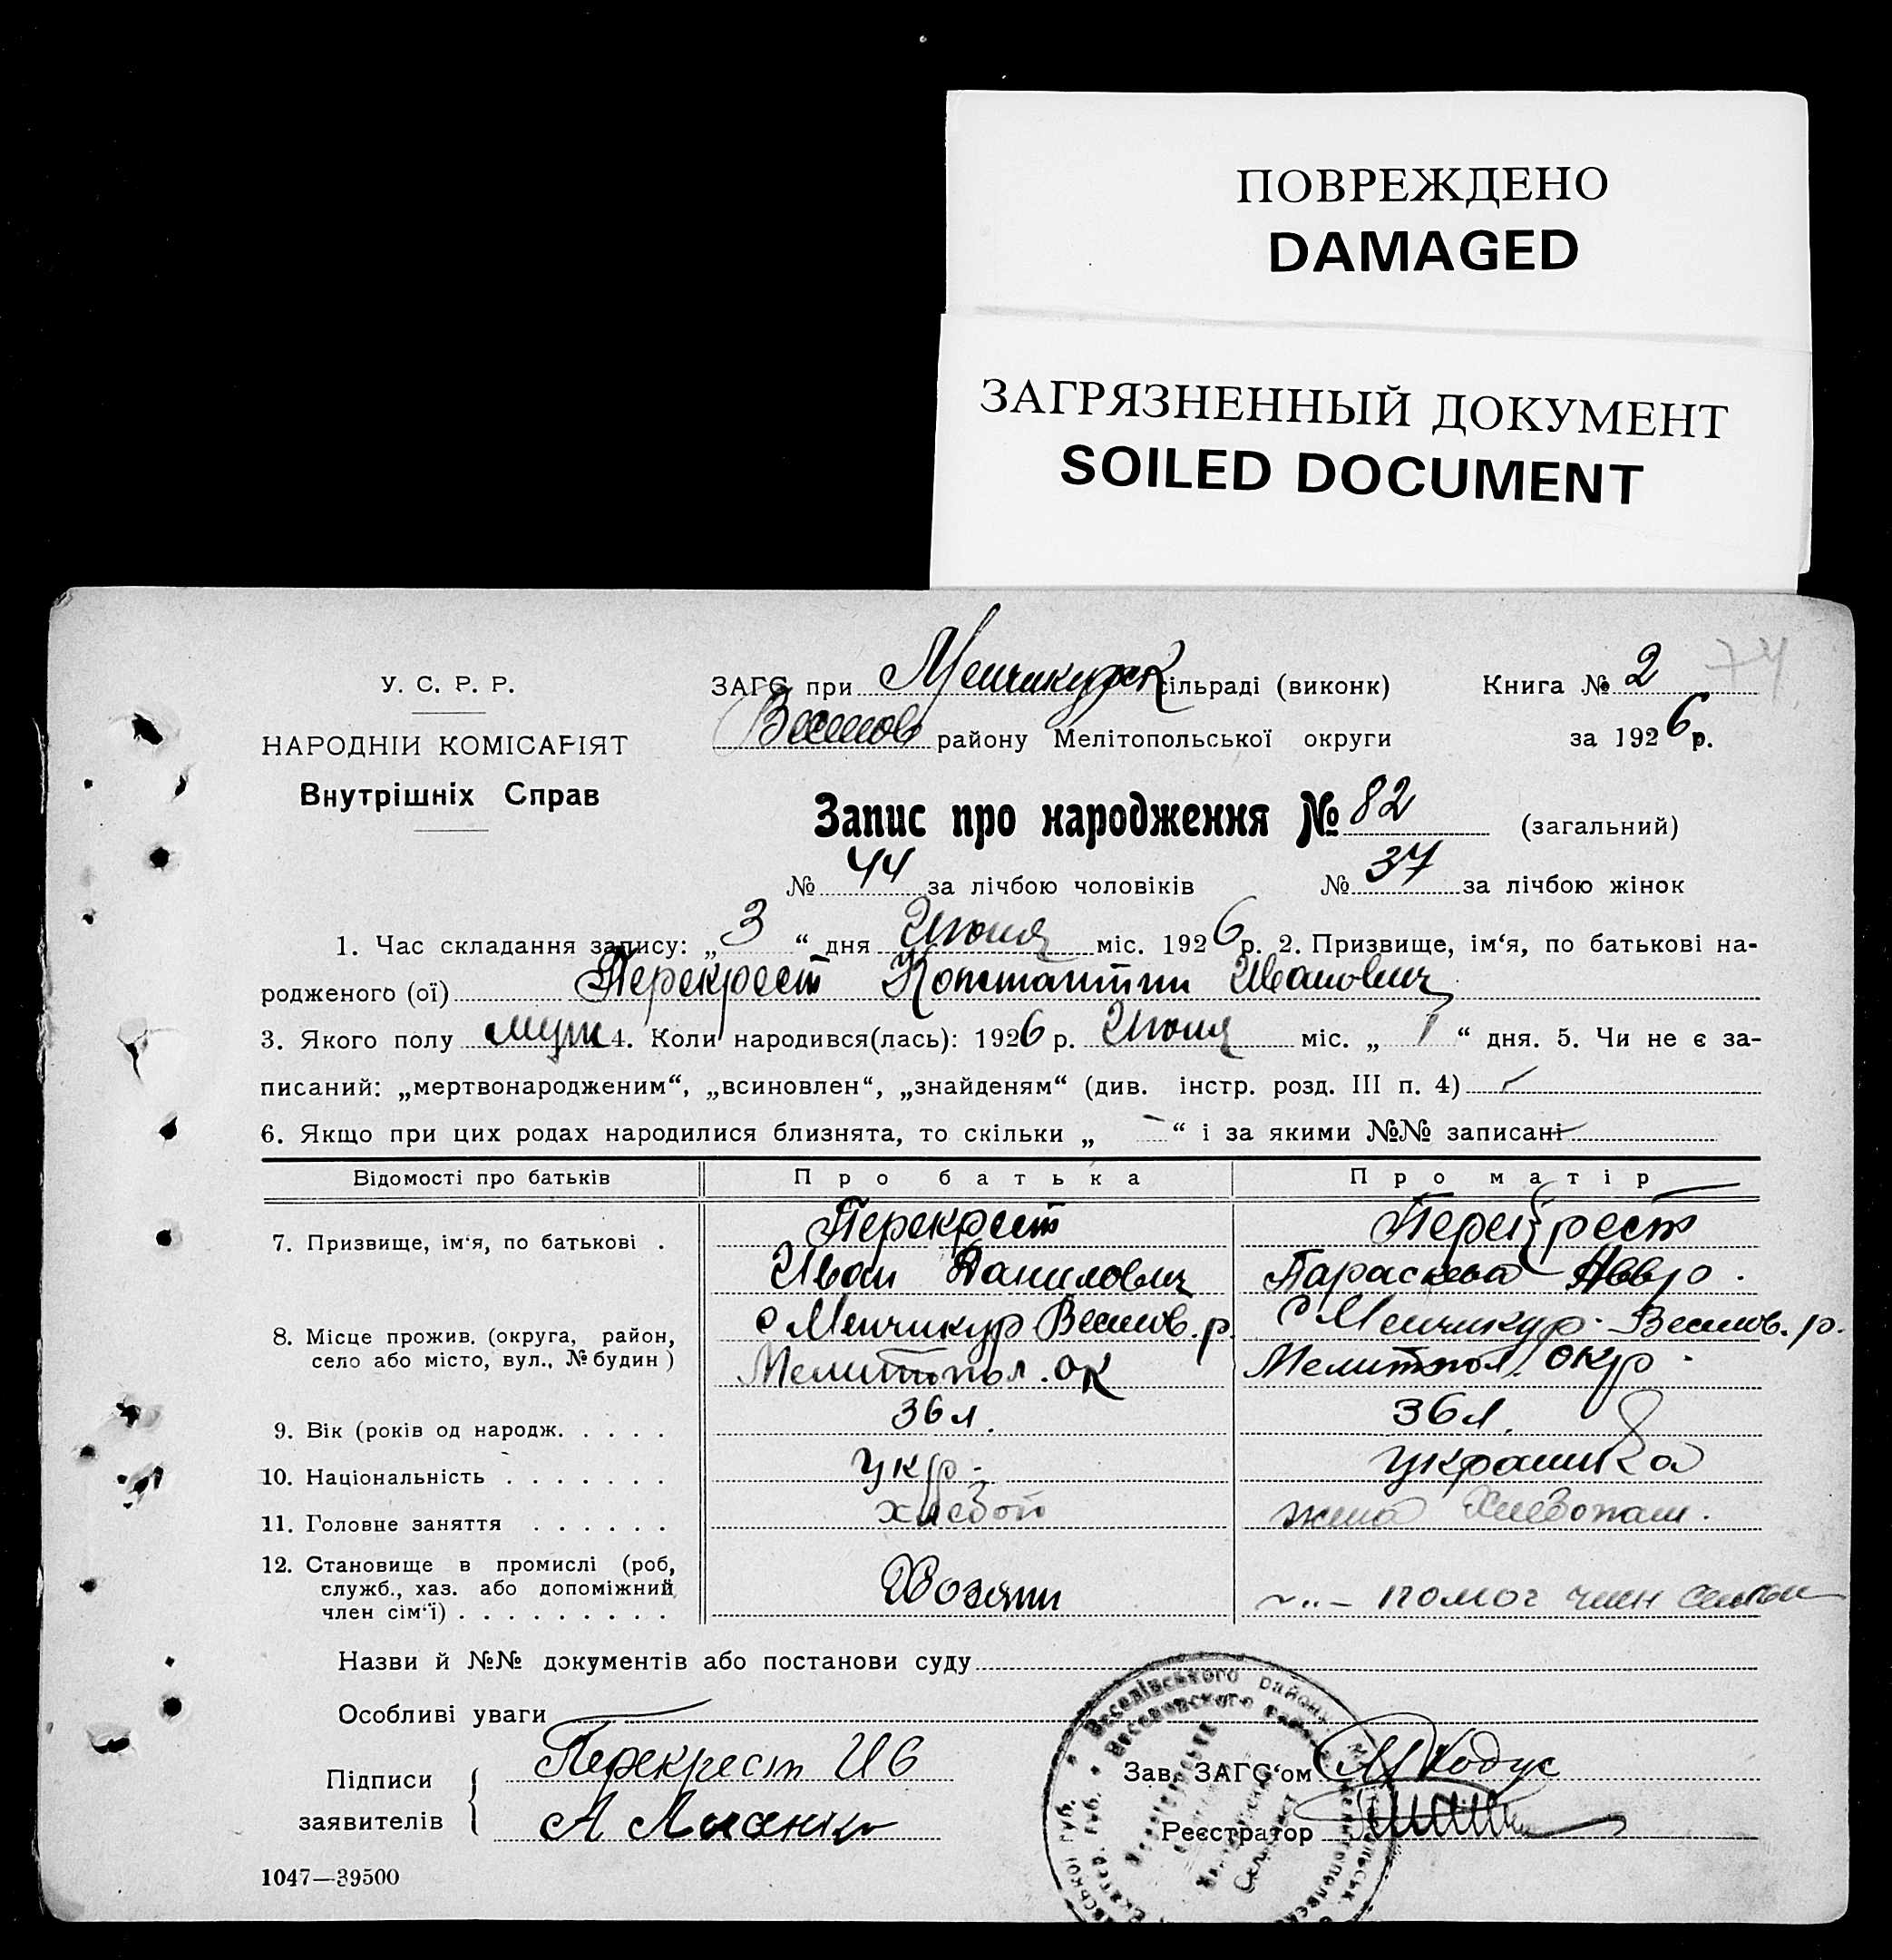 ПОВРЕЖДЕНО
DAMAGED
ЗАГРЯЗНЕННЫЙ ДОКУМЕНТ
SOILED DOCUMENT
У. С. Р. Р.
НАРОДНІЙ КОМІСАРІЯТ
Внутрішніх Справ
ЗАГС при Менчикурск сільраді (виконк) Книга № 2 74
Веселов району Мелітопольської округи за 1926 р.
Запис про народження № 82 (загальний)
№ 44 за лічбою чоловіків № 37 за лічбою жінок
1. Час складання запису: „3“ дня Июня міс. 1926 р. 2. Призвище, ім‘я, по батькові на-
родженого (ої) Перекрест Константин Иванович
3. Якого полу муж 4. Коли народився(лась): 1926 р. Июня міс. „1“ дня. 5. Чи не є за-
писаний: „мертвонародженим“, „всиновлен“, „знайденям“ (див. інстр. розд. III п. 4)
6. Якщо при цих родах народилися близнята, то скільки „ - “ і за якими №№ записані
Відомості про батьків Про батька Про матір
7. Призвище, ім‘я, по батькові . Перекрест Перекрест
Иван Данилович Параскева
8. Місце прожив. (округа, район, село або місто, вул., № будин) с Менчикур Веселов. р. с Менчикур. Веселов. р.
Мелитопол. ок Мелитопол. окр.
9. Вік (років од народж. . . . . 36 л. 36 л.
10. Національність . . . . . . . укр. украинка
11. Головне заняття . . . . . . хлебоп жена хлебопаш.
12. Становище в промислі (роб, служб., хаз. або допоміжний член сім‘ї) . . . . . . . . . Хозяин – „ – помог член семьи
Назви й №№ документів або постанови суду
Особливі уваги
Підписи заявителів { Перекрест И В
А
Зав. ЗАГС‘ом
Реєстратор
Веселівського району
Веселовского района
1047—39500